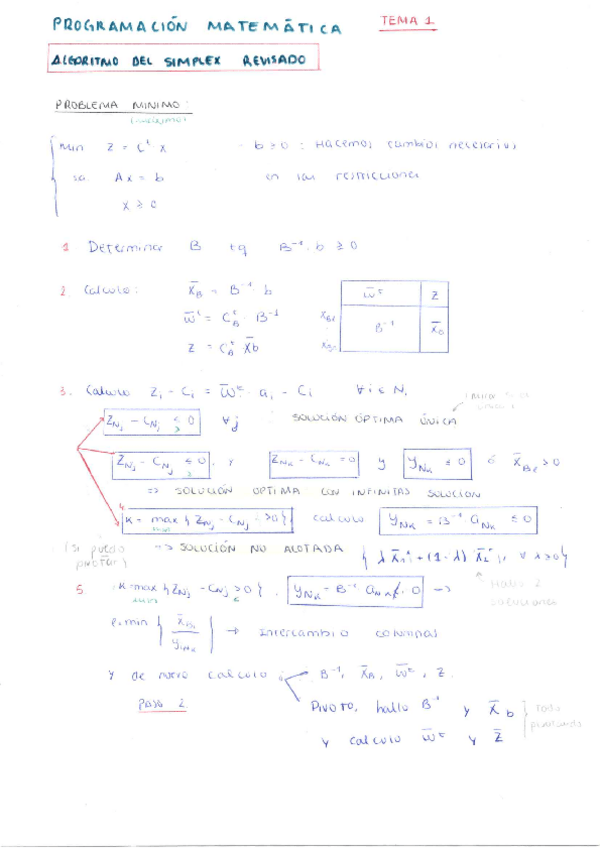 PROGRAMACIÓN MATEMÁTICA TEMA 1
ALGORITMO DEL SIMPLEX REVISADO
PROBLEMA MINIMO:
(máximo)
min Z = Cᵗ x - b ≥ 0 : Hacemos cambios necesarios
s.a. Ax = b en las restricciones
x ≥ 0
1 Determinar B tq B⁻¹. b ≥ 0
2. Calculo: x̄_B = B⁻¹ · b
w̄ᵗ = C_Bᵗ · B⁻¹
z = C_Bᵗ x̄b
w̄ᵗ z
B⁻¹ x̄_b
3. Calculo z_i - c_i = w̄ᵗ · a_i - c_i ∀ i ∈ N,
Z_Nj - C_Nj ≤ 0 ∀j SOLUCIÓN ÓPTIMA ÚNICA
≥
Z_Nj - C_Nj ≤ 0, y Z_Nk - C_Nk = 0 y y_Nk ≤ 0 ó x̄_Bℓ > 0
≥
=> SOLUCIÓN OPTIMA CON INFINITAS SOLUCION
4 K = max { Z_Nj - C_Nj > 0 } calculo y_Nk = B⁻¹ a_Nk ≤ 0
min
(si puedo pivotar) => SOLUCIÓN NO ACOTADA { λ x̄₁* + (1-λ) x̄₂*, ∀ λ>0 }
Hallo 2
soluciones
5 K = max { Z_Nj - C_Nj > 0 }, y_Nk = B⁻¹ a_Nk ≰ 0 →
min <
e. min { x̄_Bi / y_iNk } → Intercambio columnas
y de nuevo calculo: B⁻¹, x̄_B, w̄ᵗ, z.
Paso 2. Pivoto, hallo B⁻¹ y x̄b todo
pivotando
y calculo w̄ᵗ y z̄